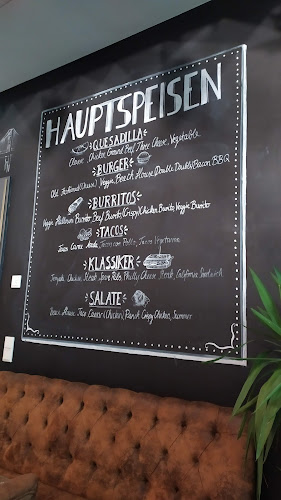 HAUPTSPEISEN
QUESADILLA
Classic Chicken Ground Beef Three Cheese, Vegetable
BURGER
Old Fashioned (Cheese) Veggie, Beach House (Double Double) Bacon BBQ
BURRITOS
Veggie Halloumi Burrito Beef Burrito (Crispy) Chicken Burrito, Veggie Burrito
TACOS
Tacos Carne Asada, Tacos con Pollo, Tacos Vegetariano
KLASSIKER
Teriyaki Chicken, Steak Spare Ribs, Philly Cheese Steak, California Sandwich
SALATE
Beach House Caesar (Chicken) Crispy Chicken, Summer